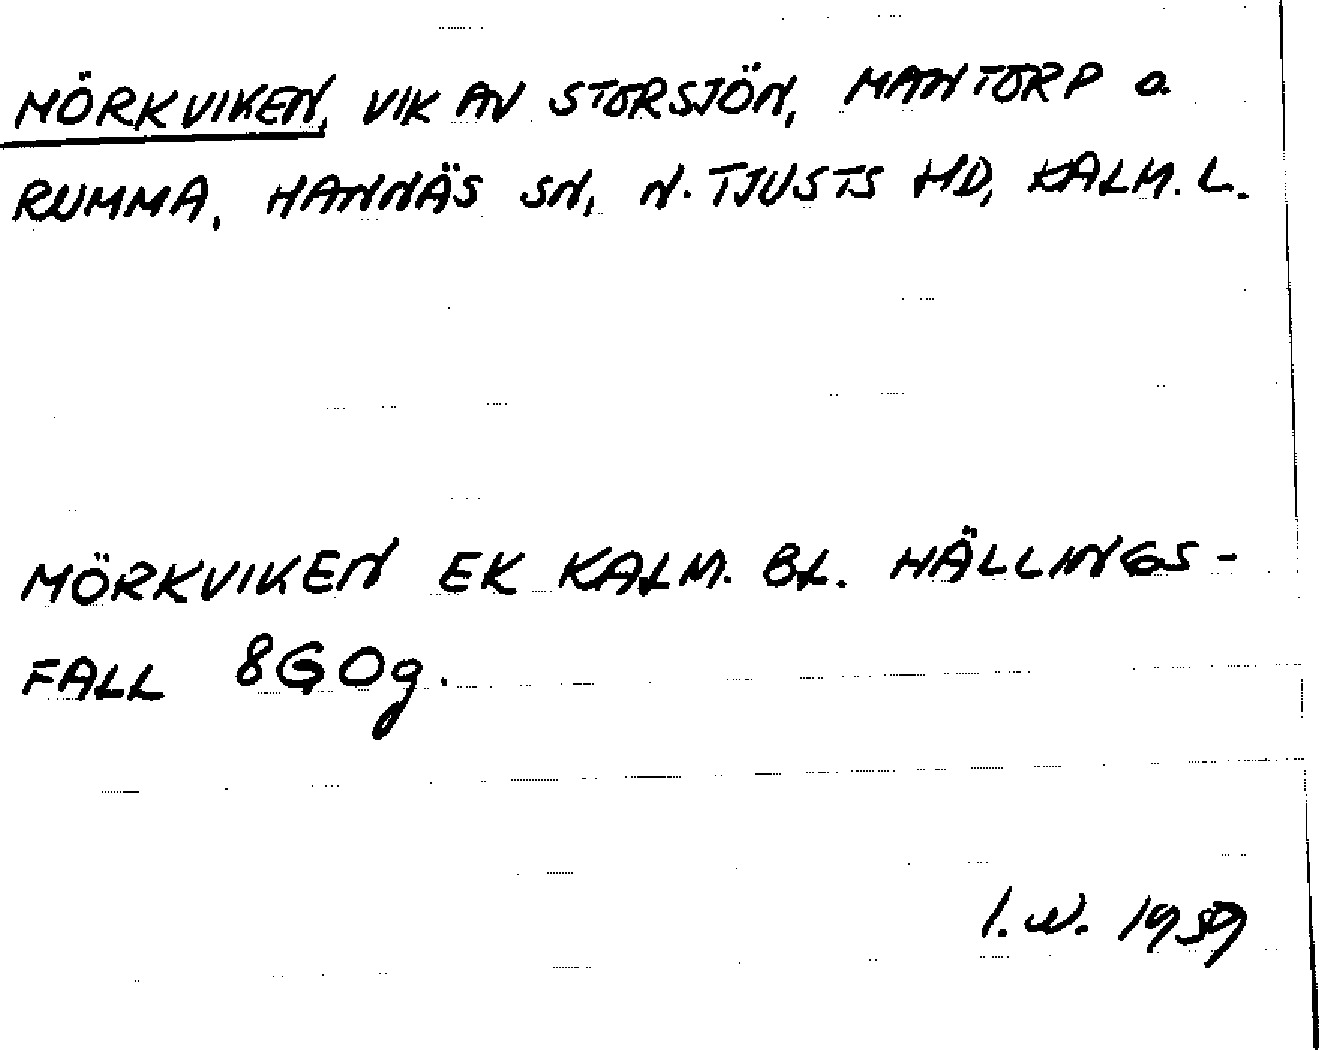 MÖRKVIKEN, VIK AV STORSJÖN, MANTORP o.
RUMMA, HANNÄS SN, N. TJUSTS HD, KALM. L.
MÖRKVIKEN EK KALM. BL. HÄLLINGS-
FALL 8G0g.
I.W. 1959